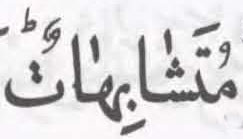 مُتَشٰابِهٰاتٌؕ